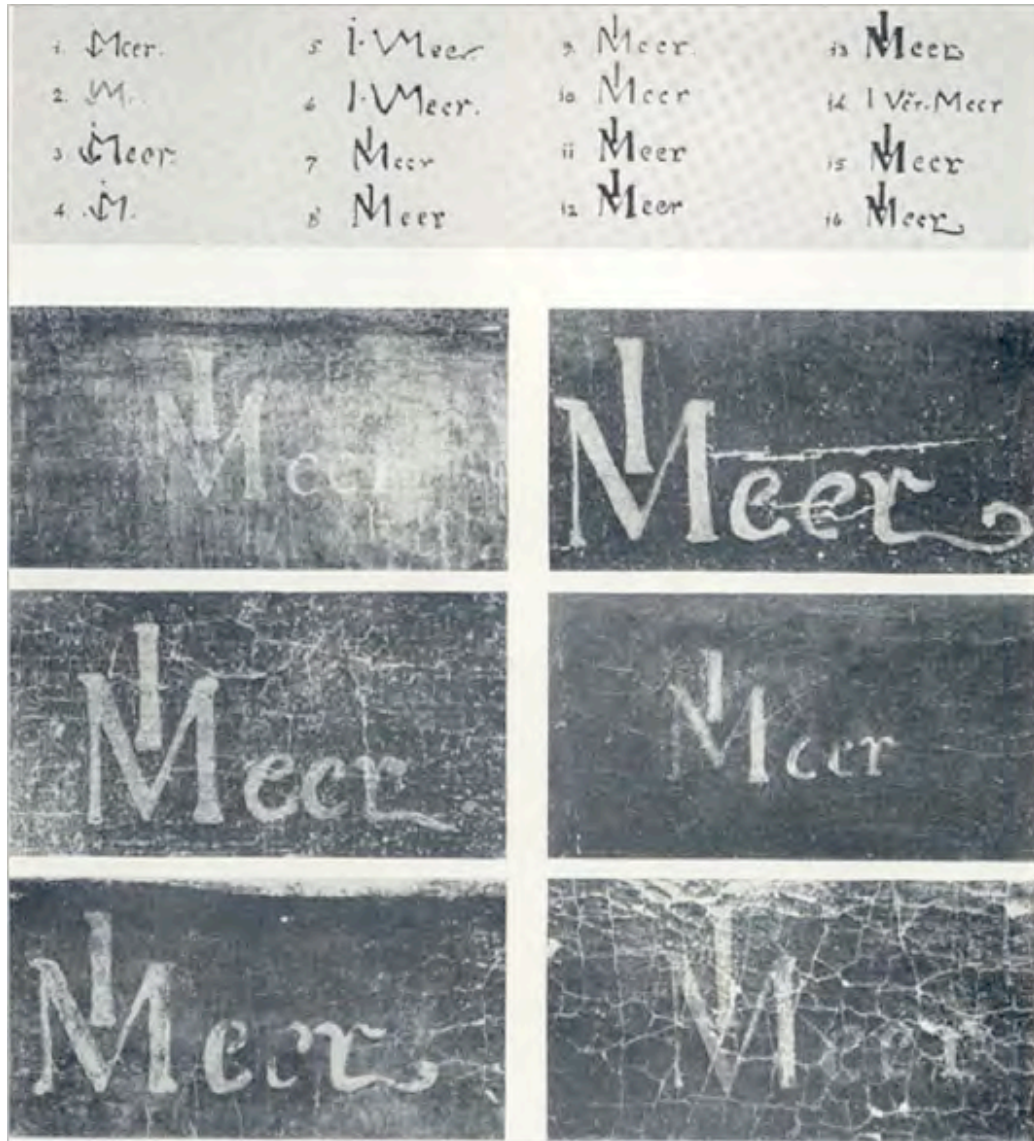 1. Meer.
2. M.
3 Meer.
4. M.
5 I·VMeer
6 I·VMeer.
7 IMeer
8 IMeer
9. IMeer.
10 IMeer
11 IMeer
12 IMeer
13 IMeer
14 I Vër·Meer
15 IMeer
16 IMeer
IMeer
IMeer
IMeer
IMeer
IMeer
IMeer